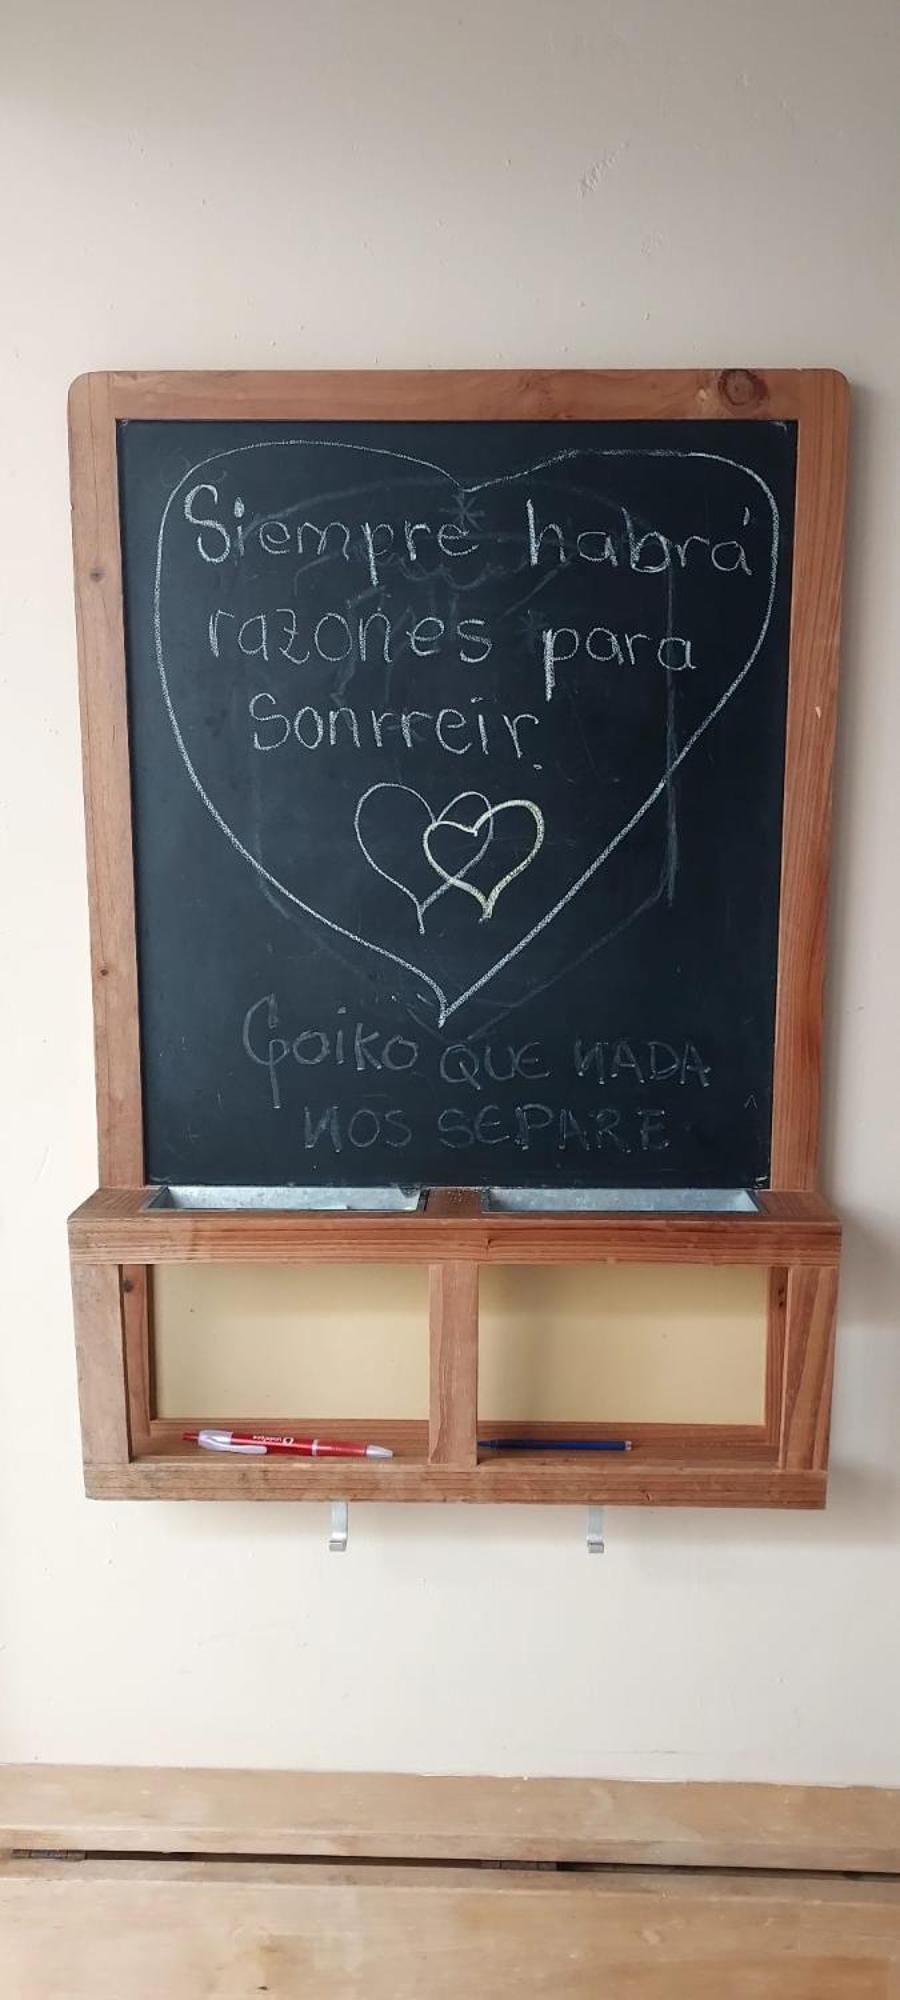 Siempre habrá
razones para
Sonrreir.
Goiko QUE NADA
NOS SEPARE